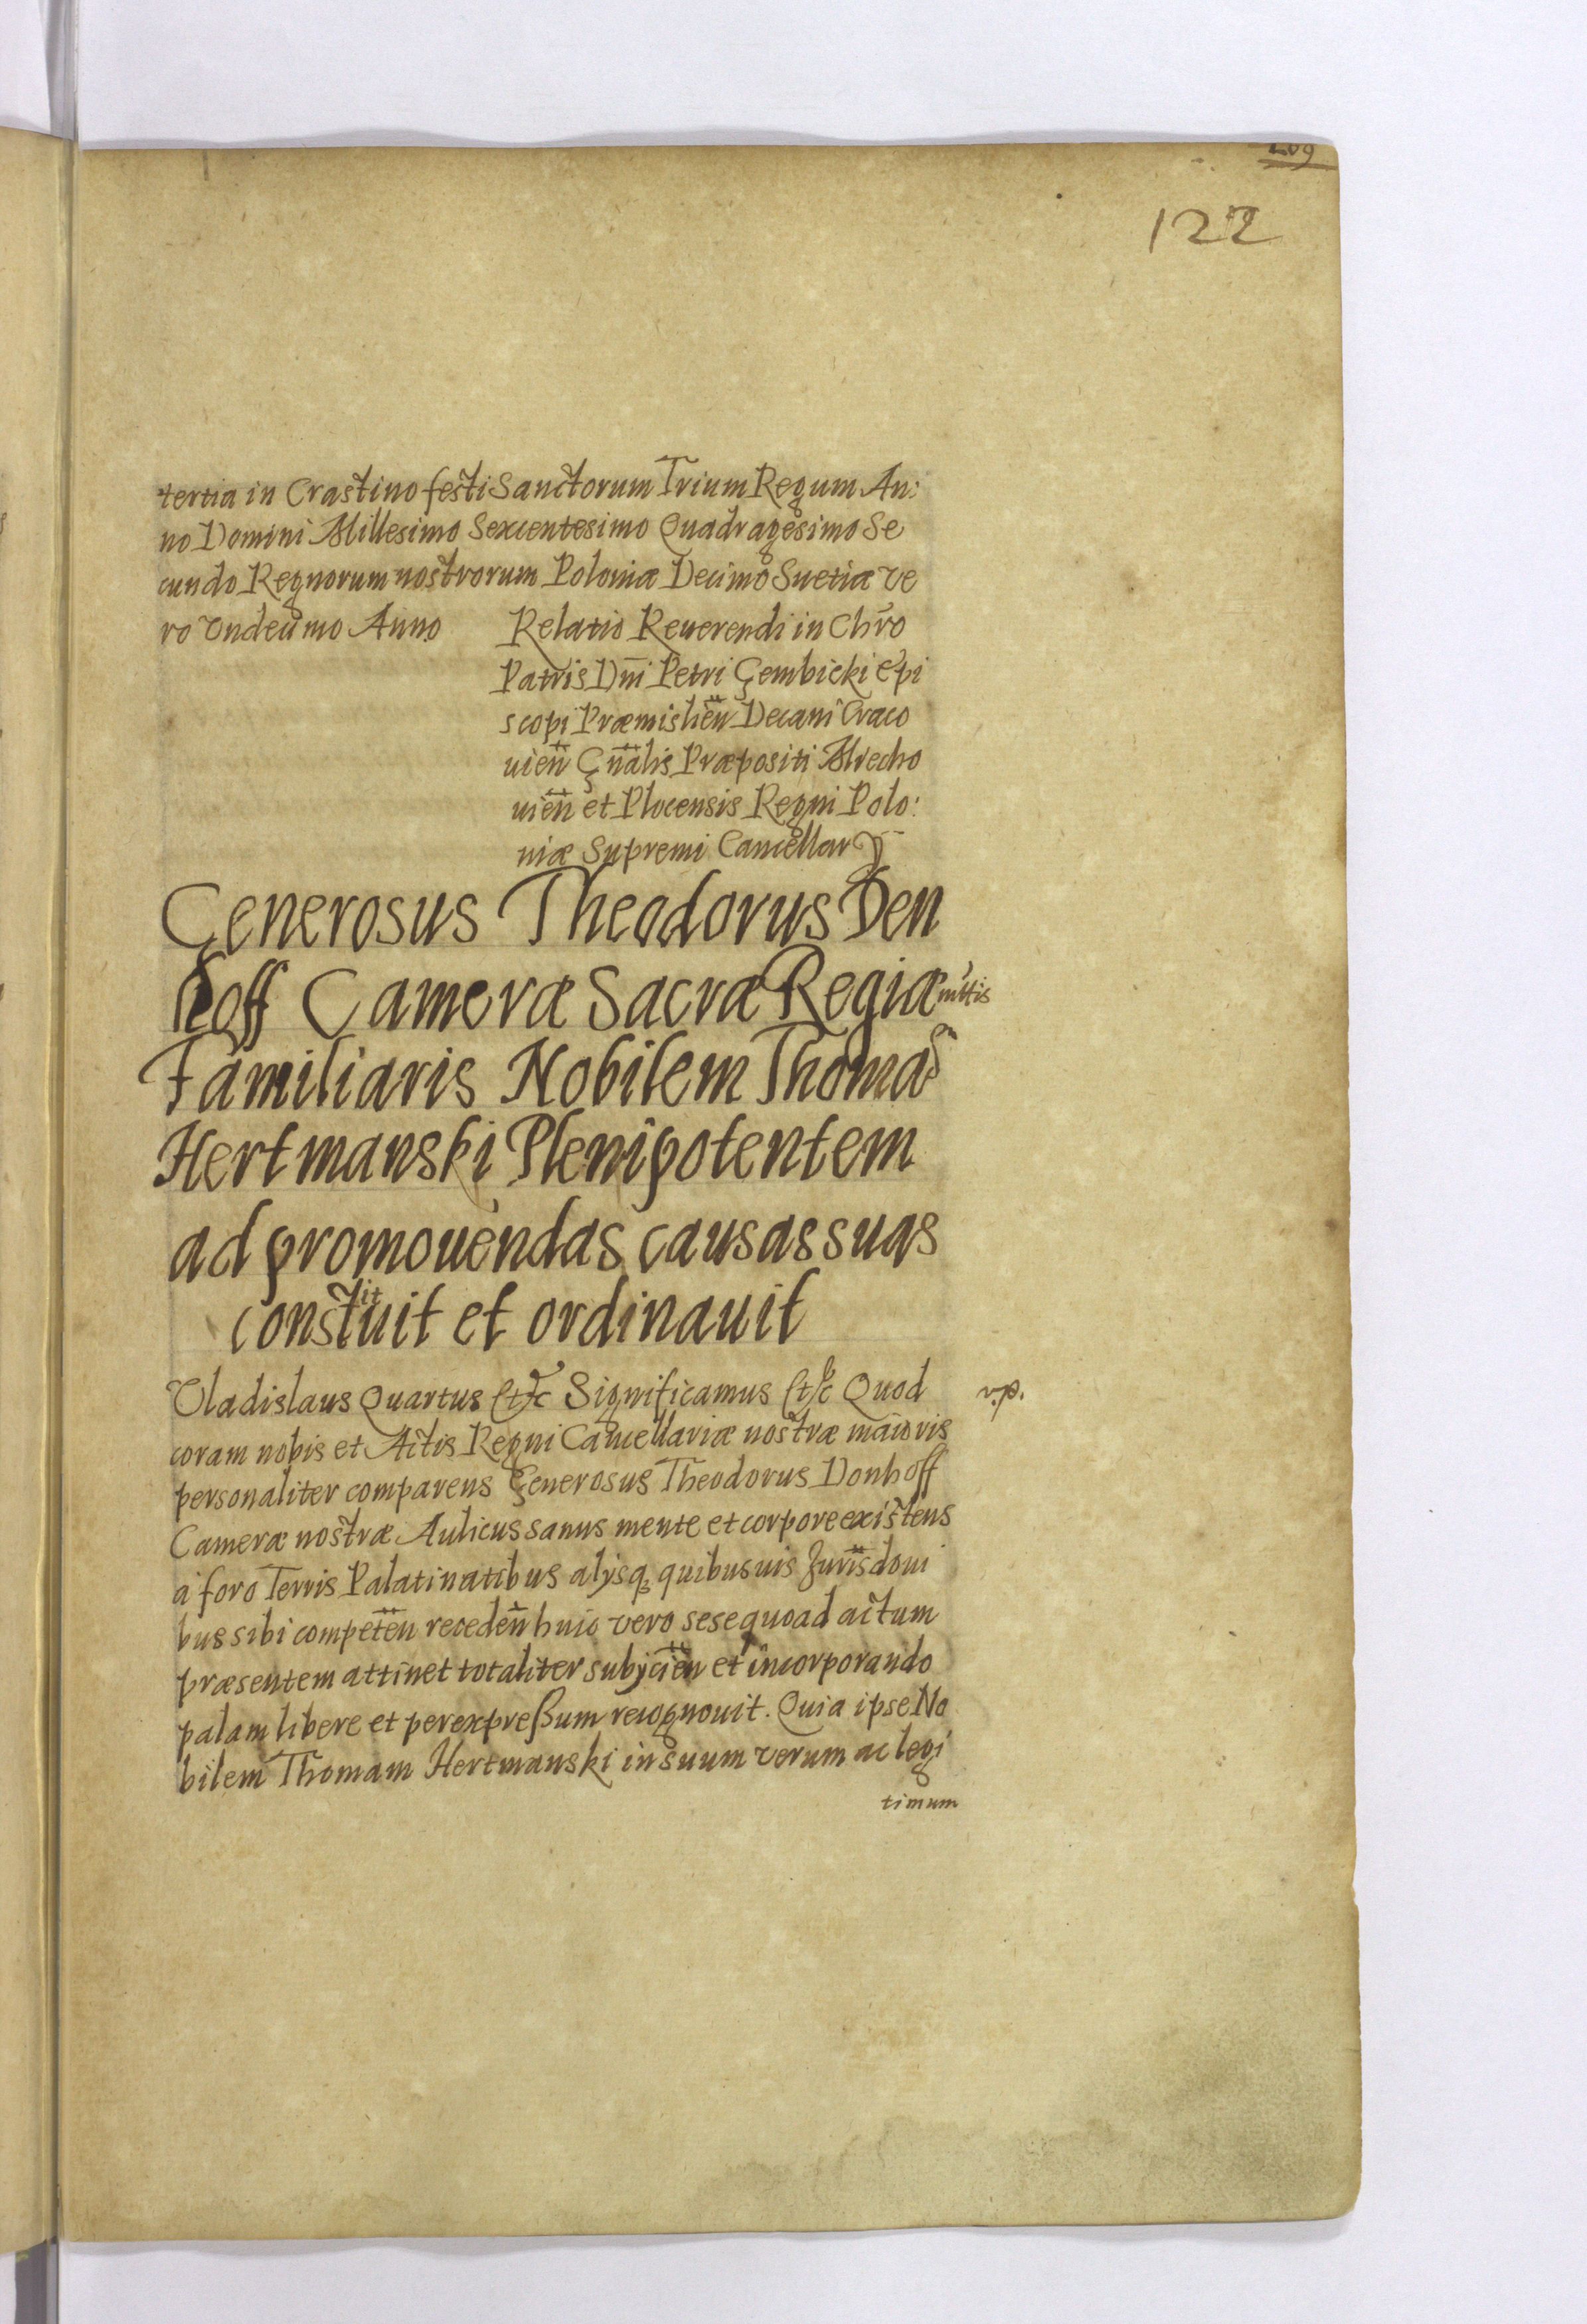 122
tertia in Crastino festi Sanctorum Trium Regum An:
no Domini Millesimo Sexcentesimo Quadragesimo Se
cundo Regnorum nostrorum Poloniæ Decimo Suetiæ ve
ro Vndecimo Anno Relatio Reuerendi in Chro
Patris Dni Petri Gembicki Epi
scopi Præmislien Decani Craco
uien Gnalis Præpositi Miecho
uien et Plocensis Regni Polo:
niæ Supremi Cancellarÿ
Generosus Theodorus Den
hoff Cameræ Sacræ Regiæ mttis
Familiaris Nobilem Thomã
Hertmanski Plenipotentem
ad promouendas causas suas
constituit et ordinauit
Vladislaus Quartus Etc Significamus Etc Quod v.p.
coram nobis et Actis Regni Cancellariæ nostræ maioris
personaliter comparens Generosus Theodorus Donhoff
Cameræ nostræ Aulicus sanus mente et corpore existens
a foro Terris Palatinatibus alÿsq3 quibusuis Jurisdoni
bus sibi competen receden huic vero sese quoad actum
præsentem attinet totaliter subÿcien et incorporando
palam libere et per expreßum recognouit. Quia ipse No
bilem Thomam Hertmanski in suum verum ac legi
timum